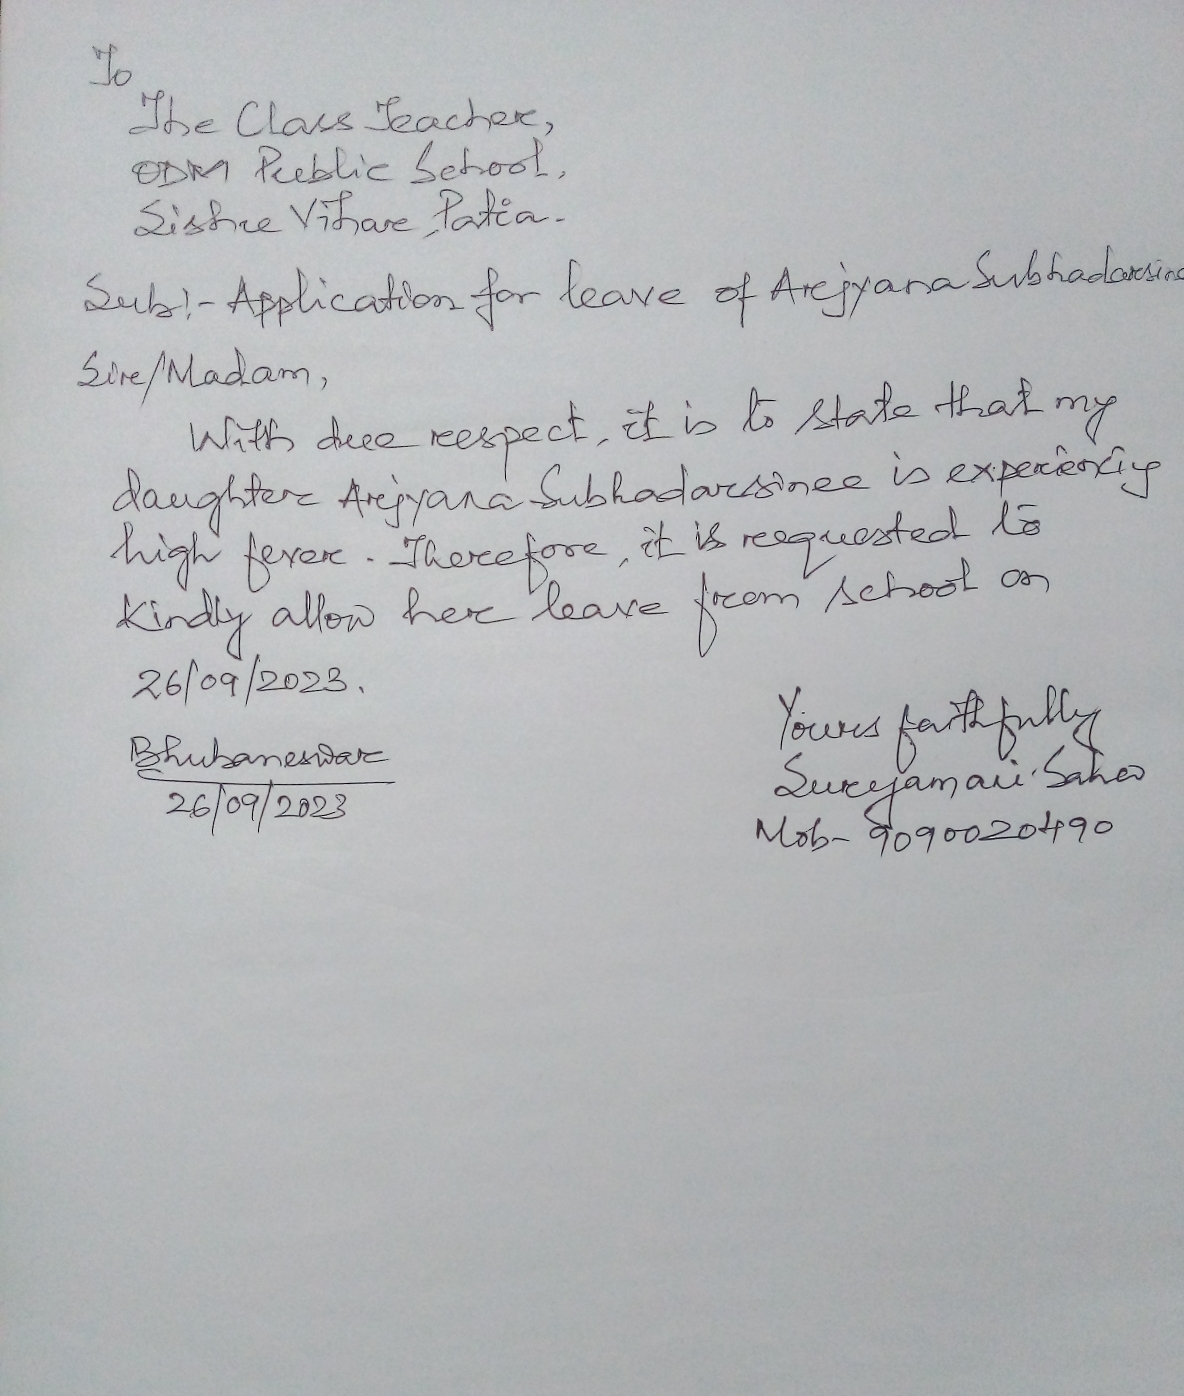 To
The Class Teacher,
ODM Public School,
Sishu Vihar, Patia.
Sub:- Application for leave of Arjyana Subhadarsine
Sir/Madam,
With due respect, it is to state that my
daughter Arjyana Subhadarsinee is experiencing
high fever. Therefore, it is requested to
Kindly allow her leave from school on
26/09/2023.
Yours faithfully
Bhubaneswar
Suryamani Sahoo
26/09/2023
Mob- 9090020490